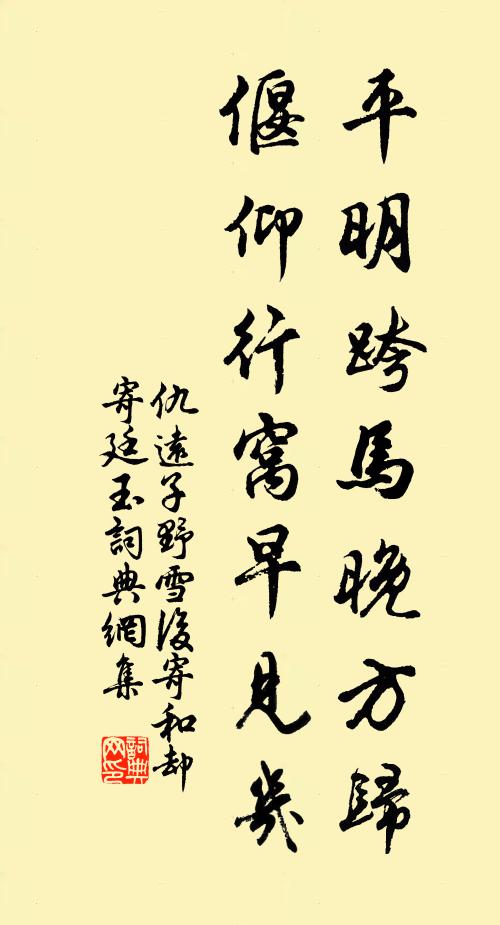 平明跨馬晚方歸
偃仰行窩早見幾
仇遠子野雪後寄和却
寄廷玉詞典網集
詞典
网印